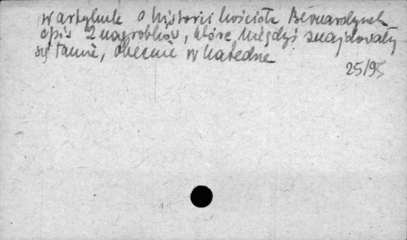 w artykule o historii kościoła Bernardynek
opis 2 nagrobków, które kiedyś znajdowały
się tamże, obecnie w katedrze
25/95